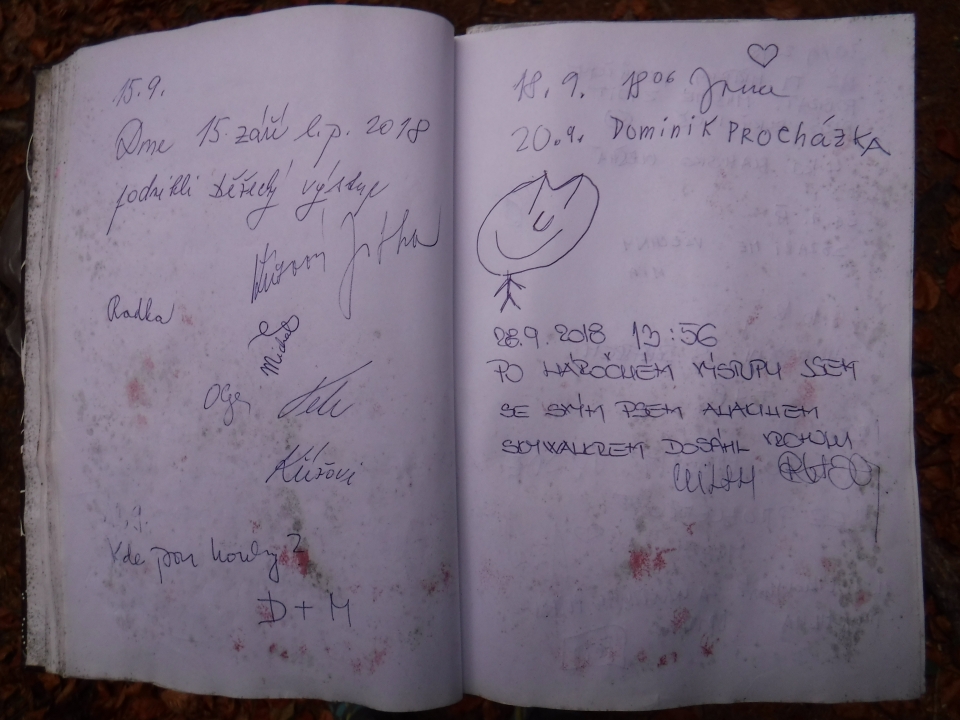 15.9.
Dne 15. září l.p. 2018
podnikli výstup
Jitka
Radka
Michal
Olga
Kde jsou houby?
D + M
18.9. 18⁰⁶ Jana
20.9. Dominik Procházka
28.9.2018 13:56
PO NÁROČNÉM VÝSTUPU JSEM
SE SVÝM PSEM ANAKINEM
SKYWALKREM DOSÁHL VRCHOLU
MILAN